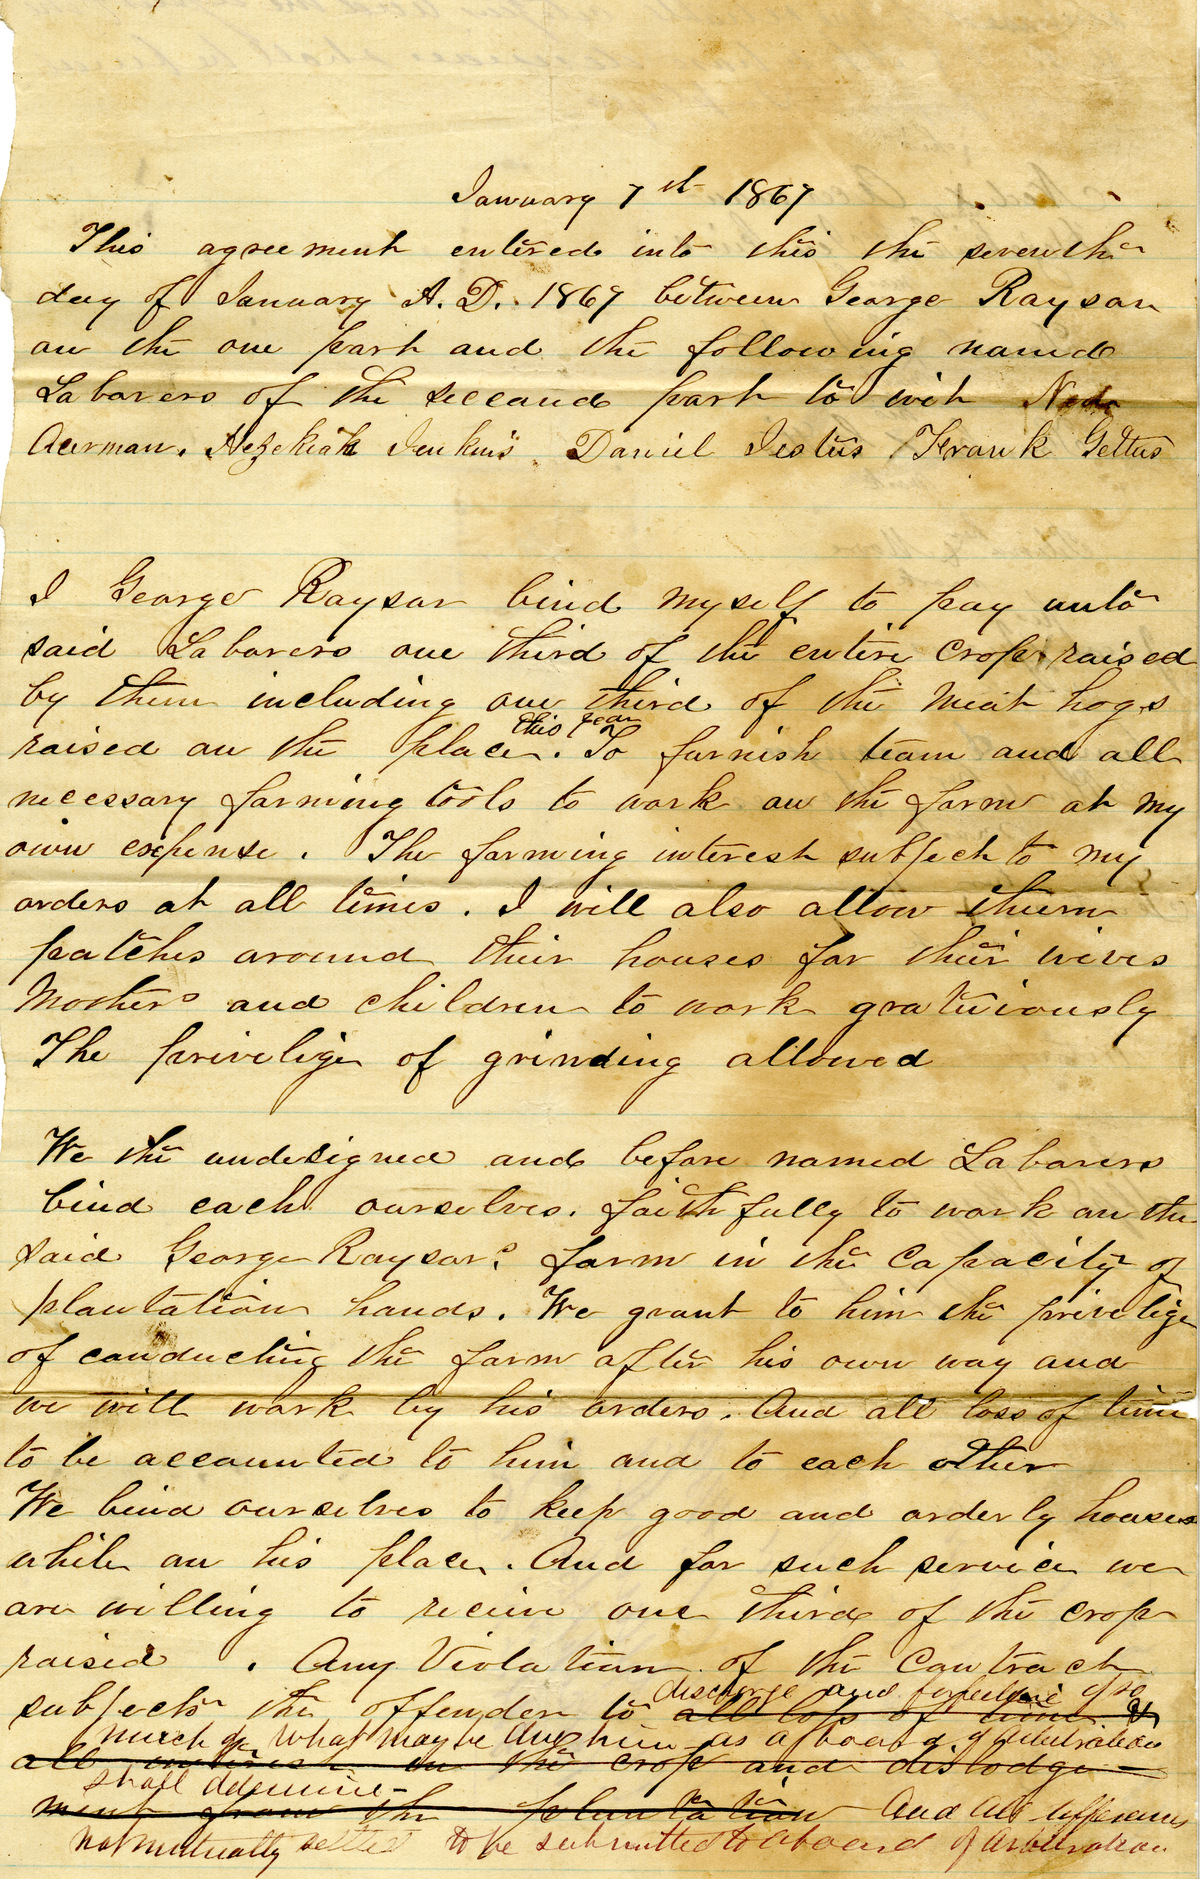 January 7th 1867
This agreement entered into this the seventh
day of January A.D. 1867 between George Raysor
on the one part and the following named
Laborers of the seccond part to wit Ned
Acerman. Hezekiah Jenkins Daniel Festus Frank Gettus
I George Raysor bind myself to pay unto
said Laborers one third of the entire crop raised
by them including one third of the meat hogs
this year
raised on the place. To furnish team and all
necessary farming tools to work on the farm at my
own expense. The farming interest subject to my
orders at all times. I will also allow them
patches around their houses for their wives
Mothers and children to work gratuiously
The privelige of grinding allowed
We the undesigned and before named Laborers
bind each ourselves. faithfully to work on the
said George Raysors farm in the capacity of
plantation hands. We grant to him the privelige
of conducting the farm after his own way and
we will work by his orders. And all loss of time
to be accounted to him and to each other
We bind ourselves to keep good and orderly houses
while on his place. And for such service we
are willing to recieve one third of the crop
raised . Any Violation of the contract
discharge and forfeiture of so
subjects the offender to all loss of time &
much of what may be due him as a board of arbitration
all interest in the crop and dislodge-
shall determine-
ment from the plantation And all differences
not mutually settled to be submitted to a board of arbitration